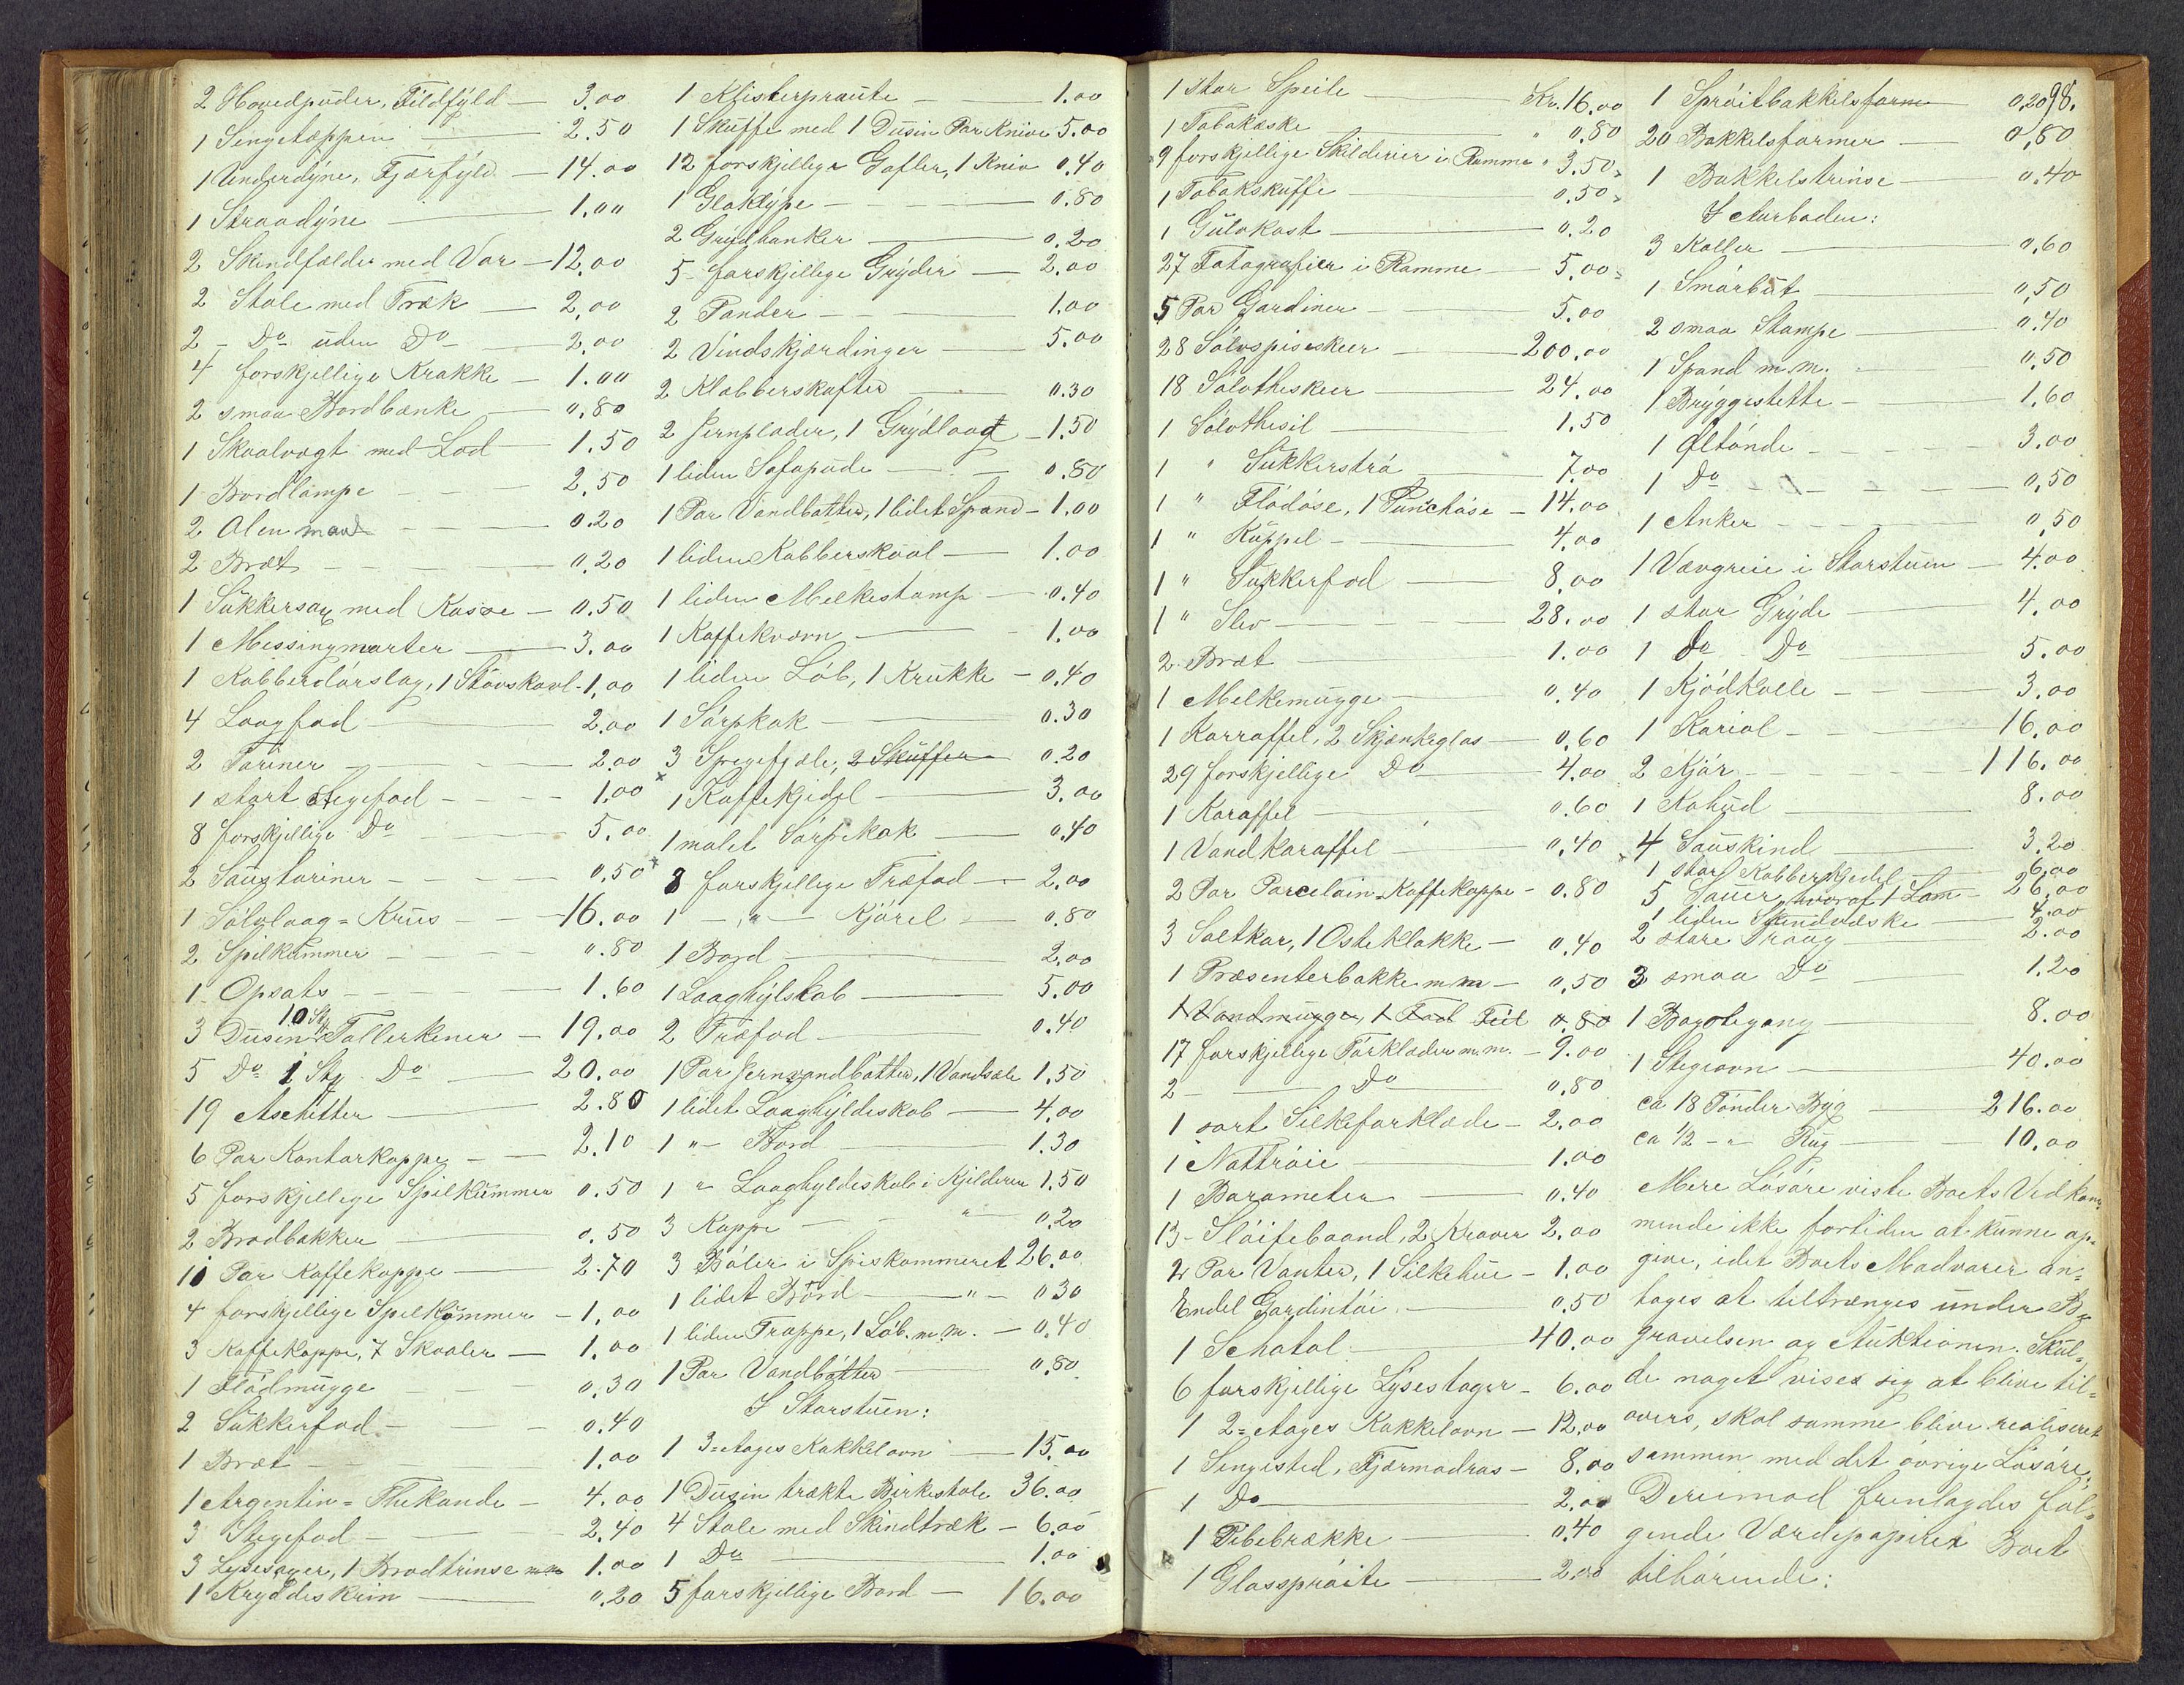 2 Hovedpuder, Fildfyld — 3.00
1 Sengetæppen — 2.50
1 Underdyne, Fjærfyld — 14.00
1 Straadyne — 1.00
2 Skindfælder med Var — 12.00
2 Stole med Træk — 2.00
2 - Do uden Do — 2.00
4 forskjellige Krakke — 1.00
2 smaa Bordbænke — 0.80
1 Skaalvægt med Lod — 1.50
1 Bordlampe — 2.50
2 Alen maal — 0.20
2 Bræt — 0.20
1 Sukkersax med Kasse — 0.50
1 Messingmorter — 3.00
1 Kobberdørslag, 1 Støvskavl - 1.00
4 Laagfad — 2.00
2 Tariner — 2.00
1 stort Stegefad — 1.00
8 forskjellige Do — 5.00
2 Saustariner — 0.50
1 Sølvlaag = Krus — 16.00
2 Spilkummer — 0.80
1 Opsats — 1.60
3 Dusin 10 Stk Tallerkener — 19.00
5 Do 1 Stk Do — 20.00
19 Aschetter — 2.80
6 Par Kontorkoppe — 2.10
5 forskjellige Spilkummer 0.50
2 Brødbakker — 0.50
10 Par Kaffekoppe — 2.70
4 forskjellige Spilkummer — 1.00
3 Kaffekoppe, 7 Skaaler — 1.00
1 Flødmugge — 0.30
2 Sukkerfad — 0.40
1 Bræt — 1.00
1 Argentin = Thekande — 4.00
3 Stegefad — 2.40
3 Lysesager, 1 Brødtrinse m.m. 1.00
1 Kryddeskrin — 0.20
1 Klistersprøute — 1.00
1 Skuffe med 1 Dusin Par Knive 5.00
12 forskjellige Gafler, 1 Kniv 0.40
1 Glaktype — 0.80
2 Grydhanker — 0.20
5 forskjellige Gryder — 2.00
2 Pander — 1.00
2 Vindskjærdinger — 5.00
2 Klabberskafter — 0.30
2 Jernplader, 1 Grydlaag — 1.50
1 liden Sofapude — 0.80
1 Par Vandbøtter, 1 lidet Spand - 1.00
1 liden Kobberskaal — 1.00
1 liden Melkestamp — 0.40
1 Kaffekværn — 1.00
1 liden Løb, 1 Krukke — 0.40
1 Sørpkak — 0.30
3 Spegefjæle, 2 Skuffer 0.20
1 Kaffekjedel — 3.00
1 malet Sørpekak — 0.40
8 forskjellige Træfad — 2.00
1 — " — Kjørel — 0.80
1 Bord — 2.00
1 Laaghylskab — 5.00
2 Træfad — 0.40
1 Par Jernvandbøtter, 1 Vandsæle 1.50
1 lidet Laaghyldeskab — 4.00
1 " Bord — 1.30
1 " Laaghyldeskab i Kjelderen 1.50
3 Koppe — " — 0.20
3 Bøler i Spiskammeret 26.00
1 lidet Bord — " — 0.30
1 liden Trappe, 1 Løb. m.m. — 0.40
1 Par Vandbøtter — 0.80
I Storstuen:
1 3=etages Kakkelovn — 15.00
1 Dusin trækte Birkestole 36.00
4 Stole med Skindtræk — 6.00
1 Do — 1.00
5 forskjellige Bord — 16.00
1 stor Speile — Kr. 16.00
1 Tobakæske — " 0.80
9 forskjellige Skilderier i Ramme " 3.50
1 Tobakskuffe — 0.50
1 Gulvkost — 0.20
27 Fotografier i Ramme — 5.00
5 Par Gardiner — 5.00
28 Sølvspiseskeer — 200.00
18 Sølvtheskeer — 24.00
1 Sølvthesil — 1.50
1 " Sukkerstrø — 7.00
1 " Flødøse, 1 Punchøse — 14.00
1 " Kuppel — 4.00
1 " Sukkerfad — 8.00
1 " Slev — 28.00
2 Bræt — 1.00
1 Melkemugge — 0.40
1 Karraffel, 2 Skjænkeglas — 0.60
29 forskjellige Do — 4.00
1 Karaffel — 0.60
1 Vandkaraffel — 0.40
2 Par Porcelain-Kaffekoppe - 0.80
3 Saltkar, 1 Osteklokke — 0.40
1 Præsenterbakke m.m — 0.50
1 Vandmugge, 1 Fad Feil 0.80
17 forskjellige Tørklæder m.m. — 9.00
2 — Do — 0.80
1 sort Silkeforklæde — 2.00
1 Nattrøie — 1.00
1 Barometer — 0.40
13 - Sløifebaand, 2 Kraver 2.00
2 Par Vanter, 1 Silkehue — 1.00
Endel Gardintøi — 0.50
1 Schatol — 40.00
6 forskjellige Lysestager — 6.00
1 2=etages Kakkelovn — 12.00
1 Sengested, Fjærmadras — 8.00
1 Do — 2.00
1 Pibebrække — 0.40
1 Glassprøite — 2.00
98.
1 Sprøitbakkelsform — 0.20
20 Bakkelsformer — 0.80
1 Bakkelstrinse — 0.40
I Aurboden:
3 Koller — 0.60
1 Smørbut — 0.50
2 smaa Stampe — 0.40
1 Spand m.m. — 0.50
1 Bryggestette — 1.60
1 Øltønde — 3.00
1 Do — 0.50
1 Anker — 0.50
1 Vævgreie i Storstuen — 4.00
1 stor Gryde — 4.00
1 Do Do — 5.00
1 Kjødkolle — 3.00
1 Kariol — 16.00
2 Kjør — 116.00
1 Kohud — 8.00
4 Sauskind — 3.20
1 stor Kobberkjedel — 6.00
5 Sauer, hvoraf 1 Lam — 26.00
1 liden Skindvæske — 4.00
2 store Traug — 2.00
3 smaa Do — 1.20
1 Bagstegang — 8.00
1 Stegeovn — 40.00
ca 18 Tønder Byg — 216.00
ca 1/2 - " Rug — 10.00
Mere Løsøre viste Boets Vedkom=
mende ikke fortiden at kunne op=
give, idet Boets Madvarer an=
tages at tiltrænges under Be=
gravelsen og Auktionen. Skul=
de noget vises sig at blive til=
overs, skal samme blive realiseret
sammen med det øvrige Løsøre.
Derimod fremlagdes føl=
gende Værdipapirer Boet
tilhørende: